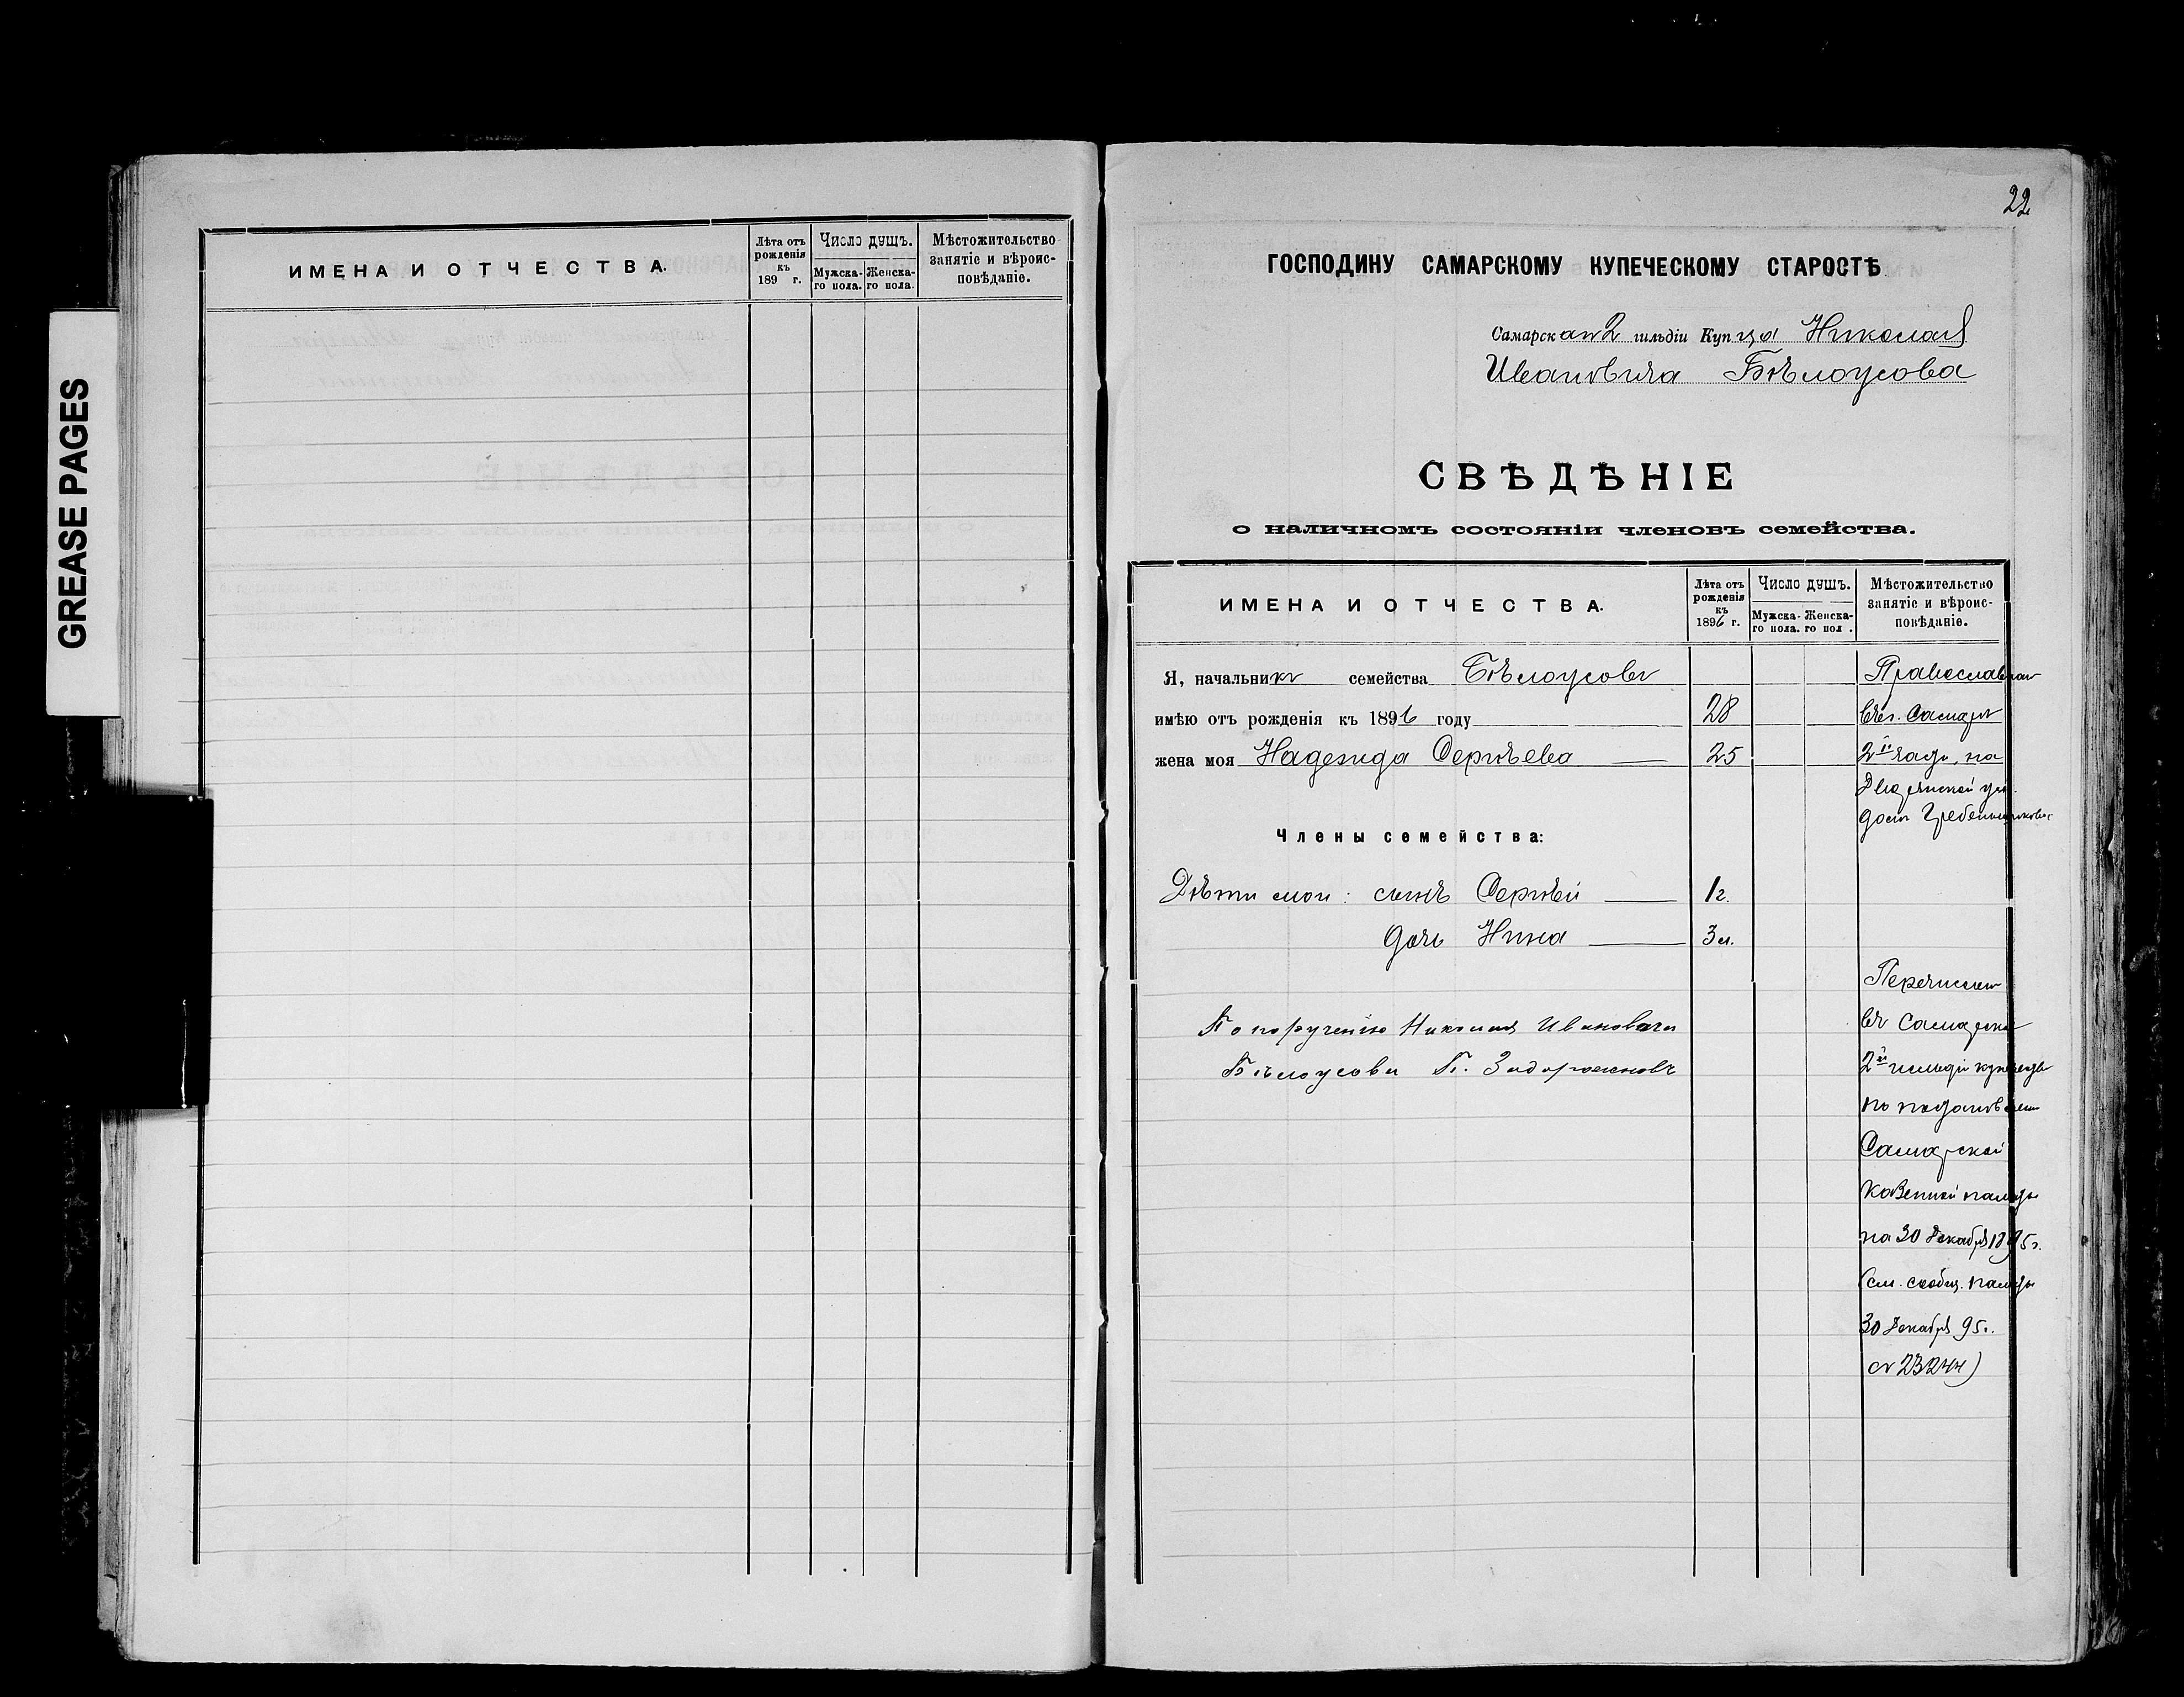 GREASE PAGES
ИМЕНА И ОТЧЕСТВА.
Лѣта отъ рожденія къ 189 г.
Число душъ.
Мужска-го пола.
Женска-го пола.
Мѣстожительство занятіе и вѣроис-повѣданіе.
22
ГОСПОДИНУ САМАРСКОМУ КУПЕЧЕСКОМУ СТАРОСТѢ
Самарскаго 2 гильдіи Купца Николая
Ивановича Бѣлоусова
СВѢДѢНІЕ
о наличномъ состояніи членовъ семейства.
ИМЕНА И ОТЧЕСТВА.
Лѣта отъ рожденія къ 1896 г.
Число душъ.
Мужска-го пола.
Женска-го пол.
Мѣстожительство занятіе и вѣроис-повѣданіе.
Я, начальникъ семейства Бѣлоусовъ
Православнаго
имѣю отъ рожденія къ 1896 году 28
въ г. Самарѣ
жена моя Надежда Сергѣева 25
2й части, на
Дворянской ул.
домъ Гребенщиковой
Члены семейства:
Дѣти мои: сынъ Сергѣй 1 г.
дочь Нина 3 м.
По порученію Николая Ивановича
Бѣлоусова П. Задорожновъ
Перечисленъ
въ Самарское
2й гильдіи купечество
по постановленію
Самарской
Казенной палаты
на 30 Декабря 1895 г.
(см. сообщ. палаты
30 Декабря 95 г.